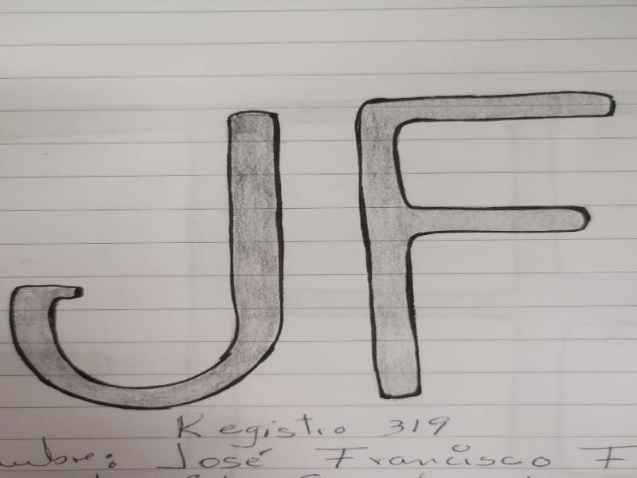 JF
Registro 319
mbre: José Francisco F